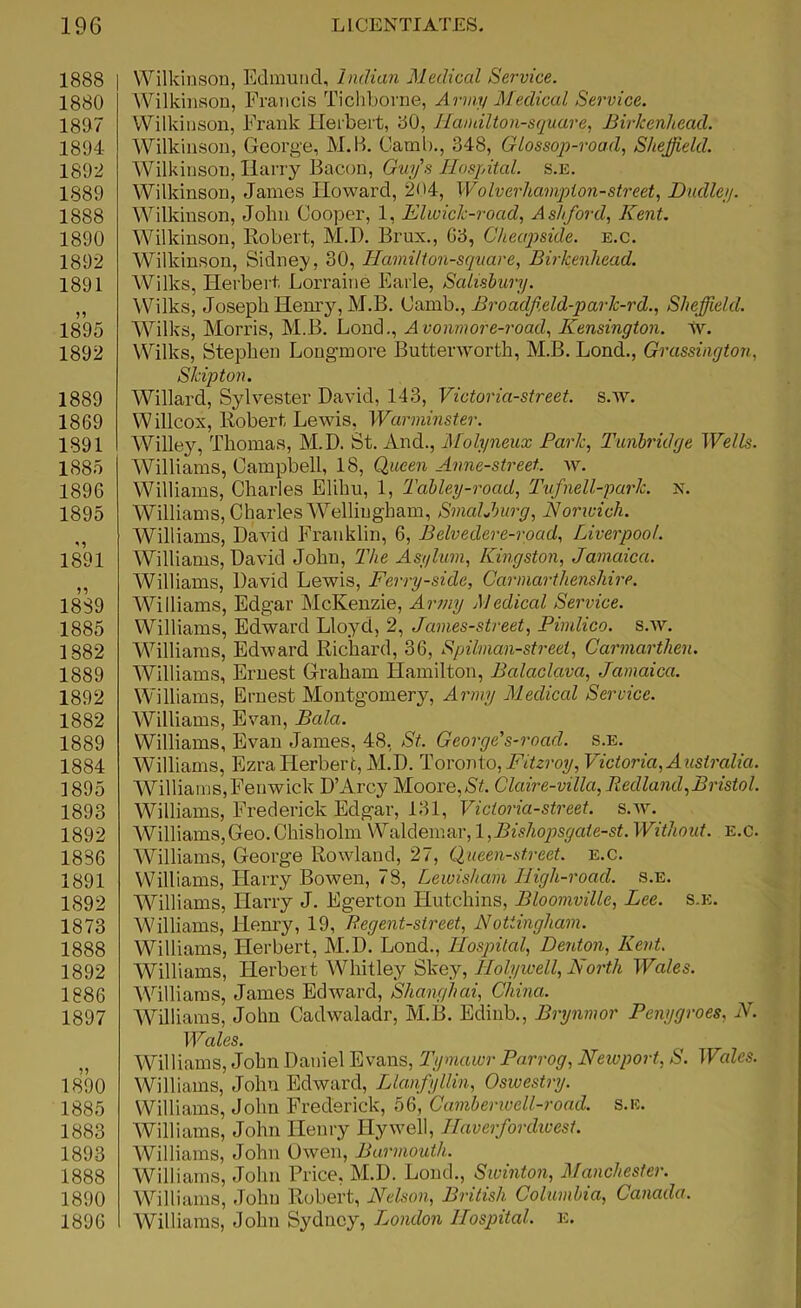 196 LICENTIATES.
1888 Wilkinson, Edmund, Indian Medical Service.
1880 Wilkinson, Francis Tichborne, Army Medical Service.
1897 Wilkinson, Frank Herbert, 30, Hamilton-square, Birkenhead.
1894 Wilkinson, George, M.B. Camb., 348, Glossop-road, Sheffield.
1892 Wilkinson, Harry Bacon, Guy's Hospital. S.E.
1889 Wilkinson, James Howard, 204, Wolverhampton-street, Dudley.
1888 Wilkinson, John Cooper, 1, Elwick-road, Ashford, Kent.
1890 Wilkinson, Robert, M.D. Brux., 63, Cheapside. E.C.
1892 Wilkinson, Sidney, 30, Hamilton-square, Birkenhead.
1891 Wilks, Herbert Lorraine Earle, Salisbury.
„ Wilks, Joseph Henry, M.B. Camb., Broadfield-park-rd., Sheffield.
1895 Wilks, Morris, M.B. Lond., Avonmore-road, Kensington. W.
1892 Wilks, Stephen Longmore Butterworth, M.B. Lond., Grassington,
Skipton.
1889 Willard, Sylvester David, 143, Victoria-street. S.W.
1869 Willcox, Robert Lewis, Warminster.
1891 Willey, Thomas, M.D. St. And., Molyneux Park, Tunbridge Wells.
1885 Williams, Campbell, 18, Queen Anne-street. W.
1896 Williams, Charles Elihu, 1, Tabley-road, Tufnell-park. N.
1895 Williams, Charles Wellingham, Smalburg, Norwich.
„ Williams, David Franklin, 6, Belvedere-road, Liverpool.
1891 Williams, David John, The Asylum, Kingston, Jamaica.
„ Williams, David Lewis, Ferry-side, Carmarthenshire.
1889 Williams, Edgar McKenzie, Army Medical Service.
1885 Williams, Edward Lloyd, 2, James-street, Pimlico. S.W.
1882 Williams, Edward Richard, 36, Spilman-street, Carmarthen.
1889 Williams, Ernest Graham Hamilton, Balaclava, Jamaica.
1892 Williams, Ernest Montgomery, Army Medical Service.
1882 Williams, Evan, Bala.
1889 Williams, Evan James, 48, St. George's-road. S.E.
1884 Williams, Ezra Herbert, M.D. Toronto, Fitzroy, Victoria, Australia.
1895 Williams, Fenwick D'Arcy Moore, St. Claire-villa, Redland, Bristol.
1893 Williams, Frederick Edgar, 131, Victoria-street. S.W.
1892 Williams, Geo. Chisholm Waldemar, 1, Bishopsgate-st. Without. E.C.
1886 Williams, George Rowland, 27, Queen-street. E.C.
1891 Williams, Harry Bowen, 78, Lewisham High-road. S.E.
1892 Williams, Harry J. Egerton Hutchins, Bloomville, Lee. S.E.
1873 Williams, Henry, 19, Regent-street, Nottingham.
1888 Williams, Herbert, M.D. Lond., Hospital, Denton, Kent.
1892 Williams, Herbert Whitley Skey, Holywell, North Wales.
1886 Williams, James Edward, Shanghai, China.
1897 Williams, John Cadwaladr, M.B. Edinb., Brynmor Penygroes, N.
Wales.
„ Williams, John Daniel Evans, Tymawr Parrog, Newport, S. Wales.
1890 Williams, John Edward, Llanfyllin, Oswestry.
1885 Williams, John Frederick, 56, Camberwell-road. S.E.
1883 Williams, John Henry Hywell, Haverfordwest.
1893 Williams, John Owen, Barmouth.
1888 Williams, John Price, M.D. Lond., Swinton, Manchester.
1890 Williams, John Robert, Nelson, British Columbia, Canada.
1896 Williams, John Sydney, London Hospital. E.